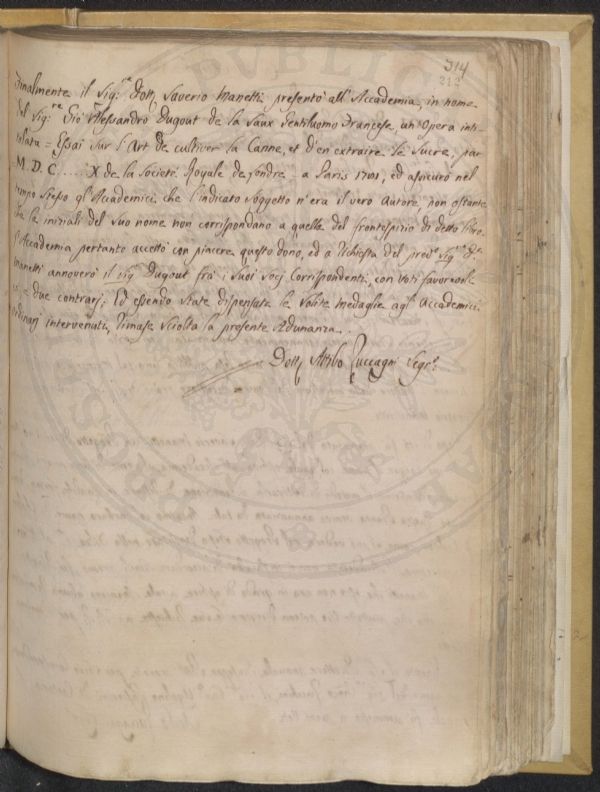 314
212
Finalmente il Sig:re Dott. Saverio Manetti presentò all'Accademia, in nome
del Sig:re Gio: Alessandro Dugout de la Saux Gentiluomo Francese, un Opera inti-
tolata = Essai Sur l'Art de cultiver la Canne, et d'en extraire le Sucre, par
M. D. C. .... X de la Societé Royale de Londre = a Paris 1781, ed assicurò nel
tempo stesso gl'Accademici, che l'indicato Soggetto n'era il vero Autore, non ostante
che le iniziali del suo nome non corrispondano a quelle del frontespizio di detto libro.
L'Accademia pertanto accettò con piacere questo dono, ed a richiesta del pred:o Sig:re D.r
Manetti annoverò il Sig:re Dugout frà i suoi Socj Corrispondenti, con Voti favorevoli
= due contrarj; Ed essendo state dispensate le solite medaglie agl'Accademici
Ordinarj intervenuti, rimase sciolta la presente Adunanza.
Dott. Attilio Zuccagni Segr:o